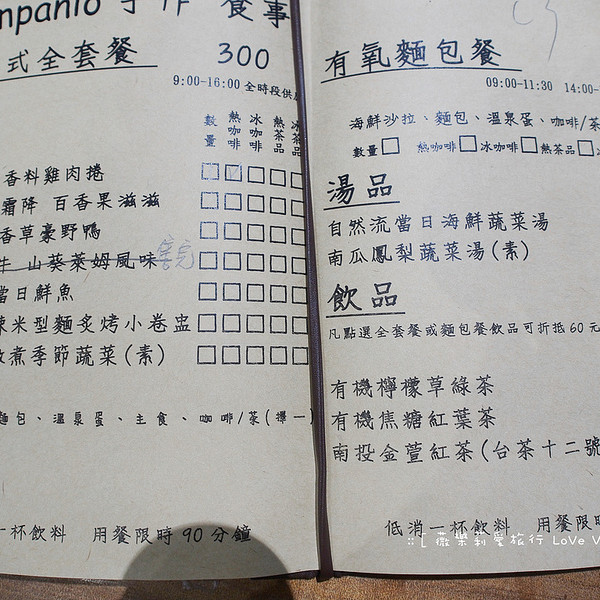 npanio 手作 食事
式全套餐 300
9:00-16:00 全時段供應
數量 熱咖啡 冰咖啡 熱茶品 冰茶品
香料雞肉捲
霜降 百香果滋滋
香草豪野鴨
牛 山葵萊姆風味 售完
當日鮮魚
米型麵炙烤小卷盅
煮季節蔬菜(素)
麵包、溫泉蛋、主食、咖啡/茶(擇一)
一杯飲料 用餐限時90分鐘
有氧麵包餐
09:00-11:30 14:00-
海鮮沙拉、麵包、溫泉蛋、咖啡/茶
數量 熱咖啡 冰咖啡 熱茶品 冰
湯品
自然流當日海鮮蔬菜湯
南瓜鳳梨蔬菜湯(素)
飲品
凡點選全套餐或麵包餐飲品可折抵60元
有機檸檬草綠茶
有機焦糖紅葉茶
南投金萱紅茶(台茶十二號
低消一杯飲料 用餐限時
::[ 薇樂莉愛旅行 LoVe V